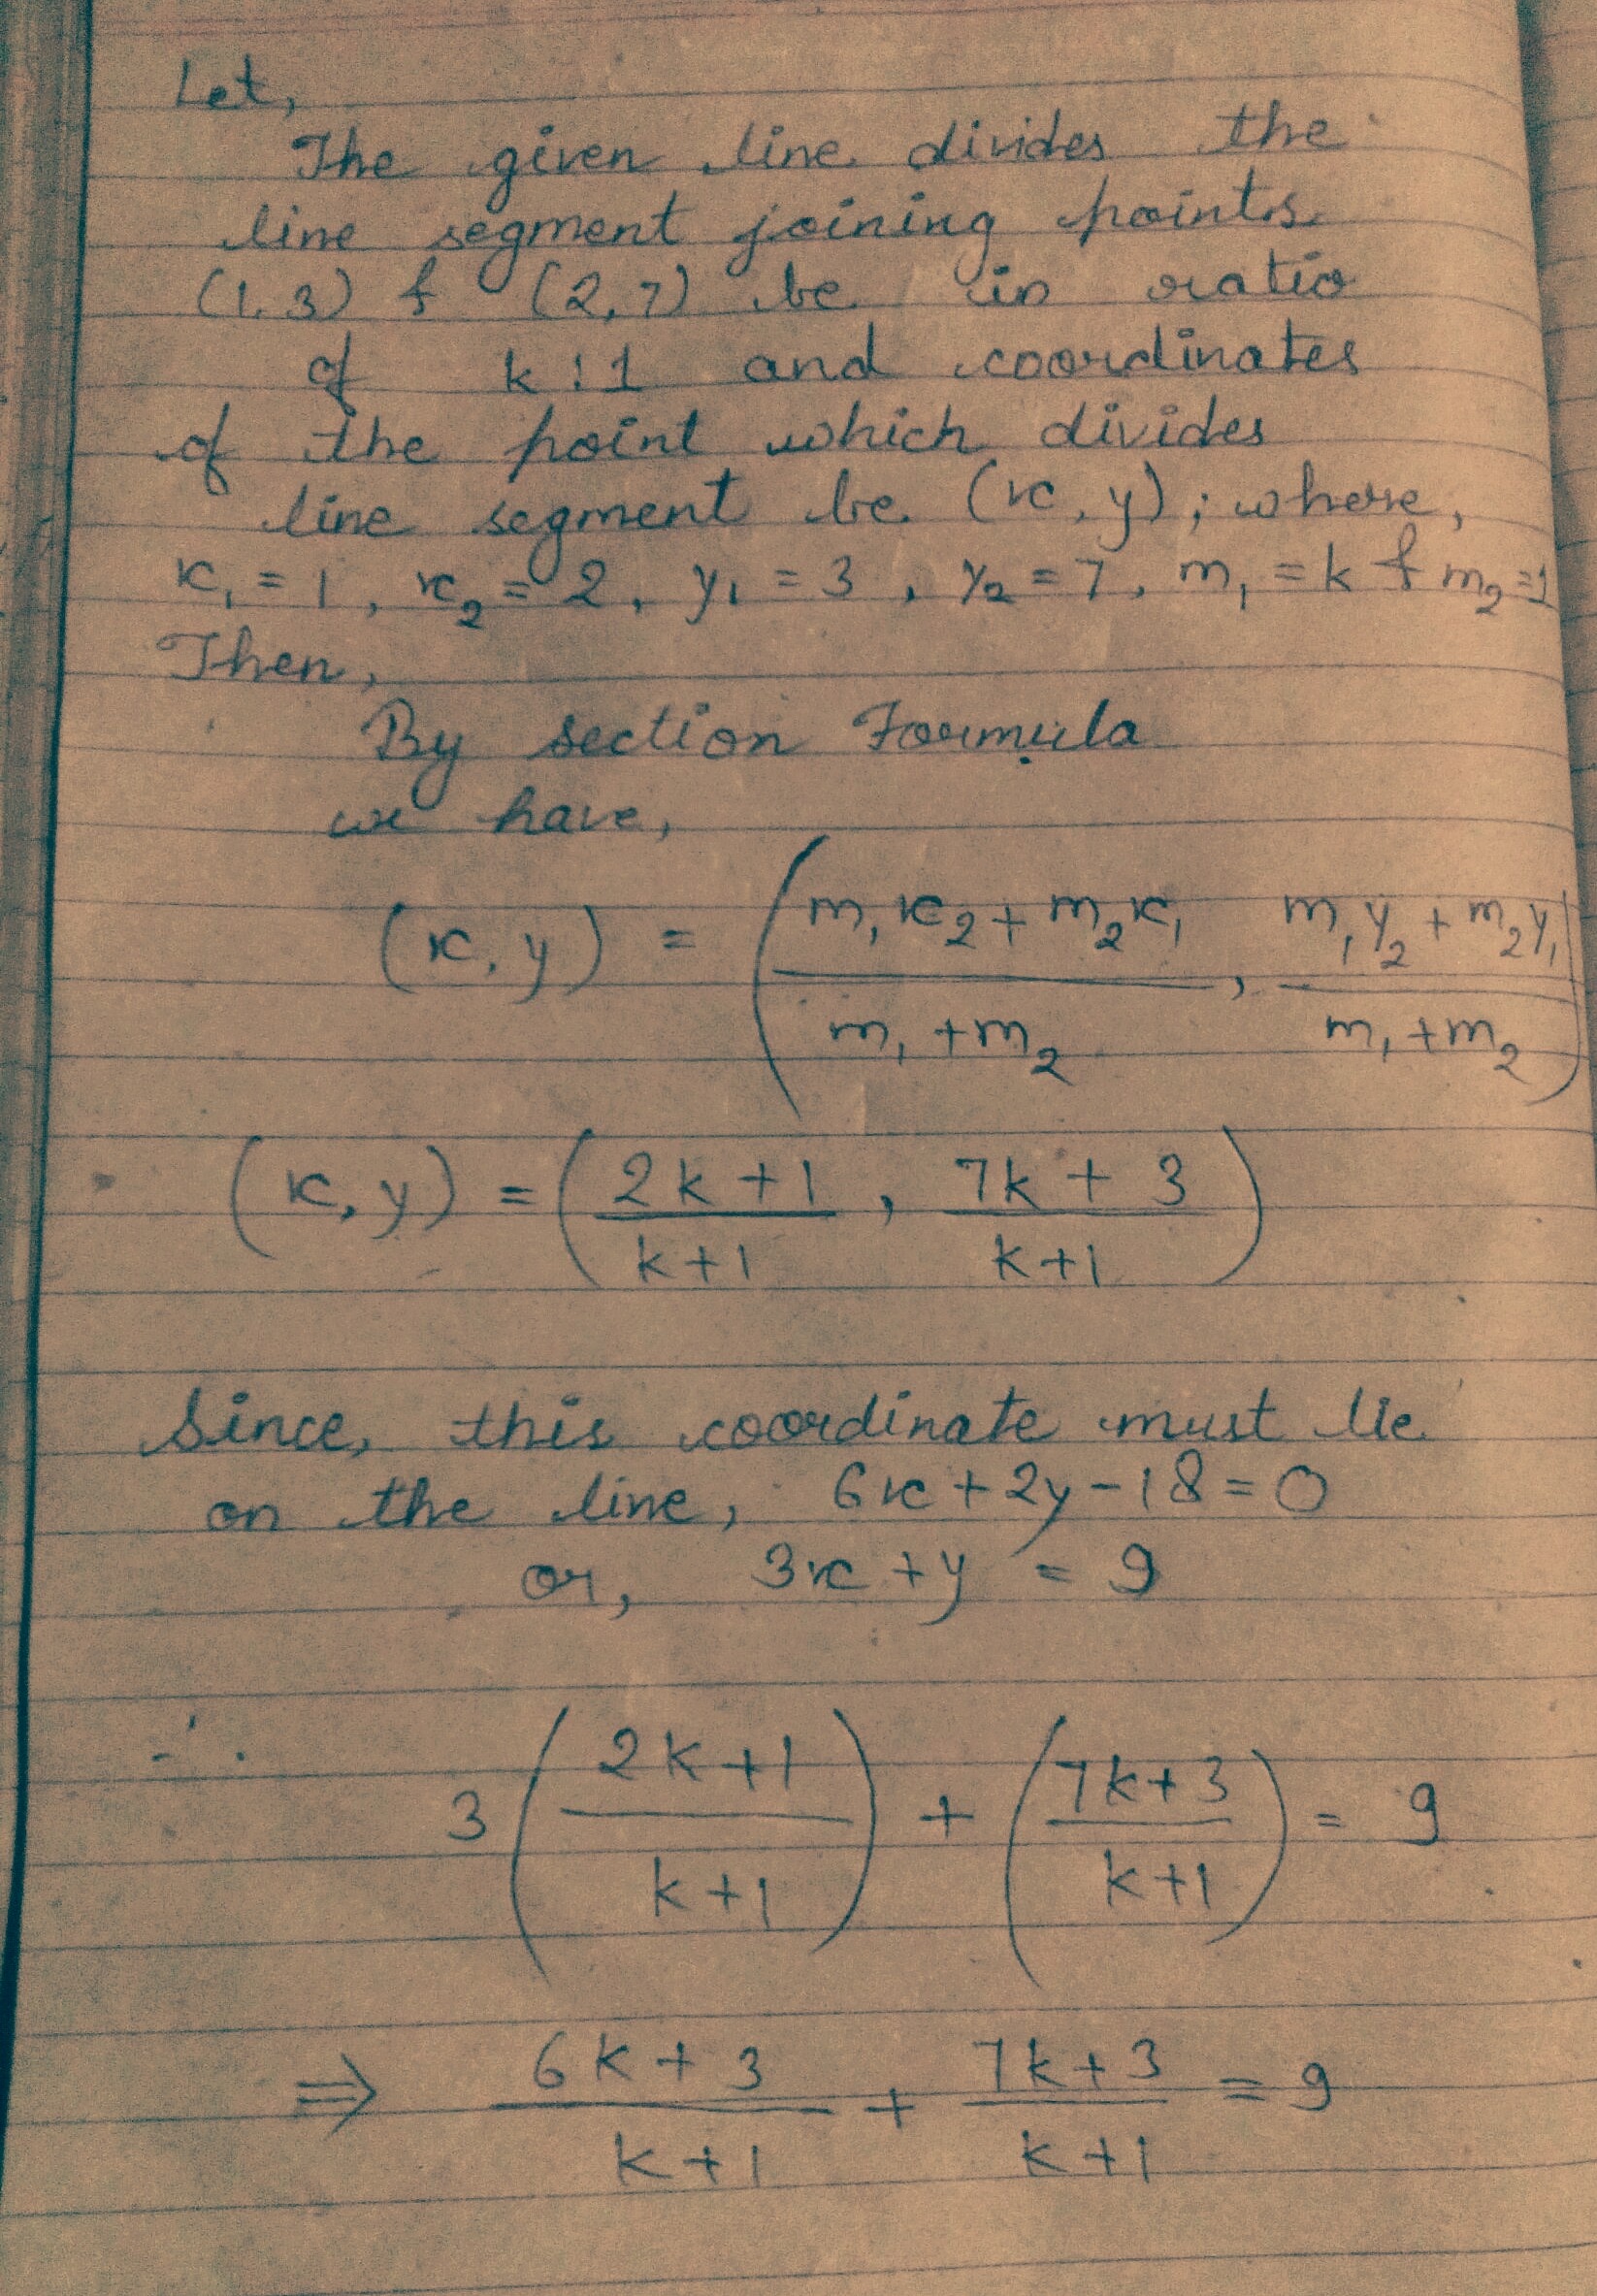 Let,
The given line divides the
line segment joining points
(1,3) & (2,7) be in ratio
of k:1 and coordinates
of the point which divides
line segment be (x,y); where,
x₁ = 1, x₂ = 2, y₁ = 3, y₂ = 7, m₁ = k & m₂ = 1
Then,
By section Formula
we have,
(x,y) = (m₁x₂ + m₂x₁ / m₁ + m₂, m₁y₂ + m₂y₁ / m₁ + m₂)
(x,y) = (2k+1 / k+1, 7k+3 / k+1)
Since, this coordinate must lie
on the line, 6x + 2y - 18 = 0
or, 3x + y = 9
∴ 3(2k+1 / k+1) + (7k+3 / k+1) = 9
⇒ 6k+3 / k+1 + 7k+3 / k+1 = 9